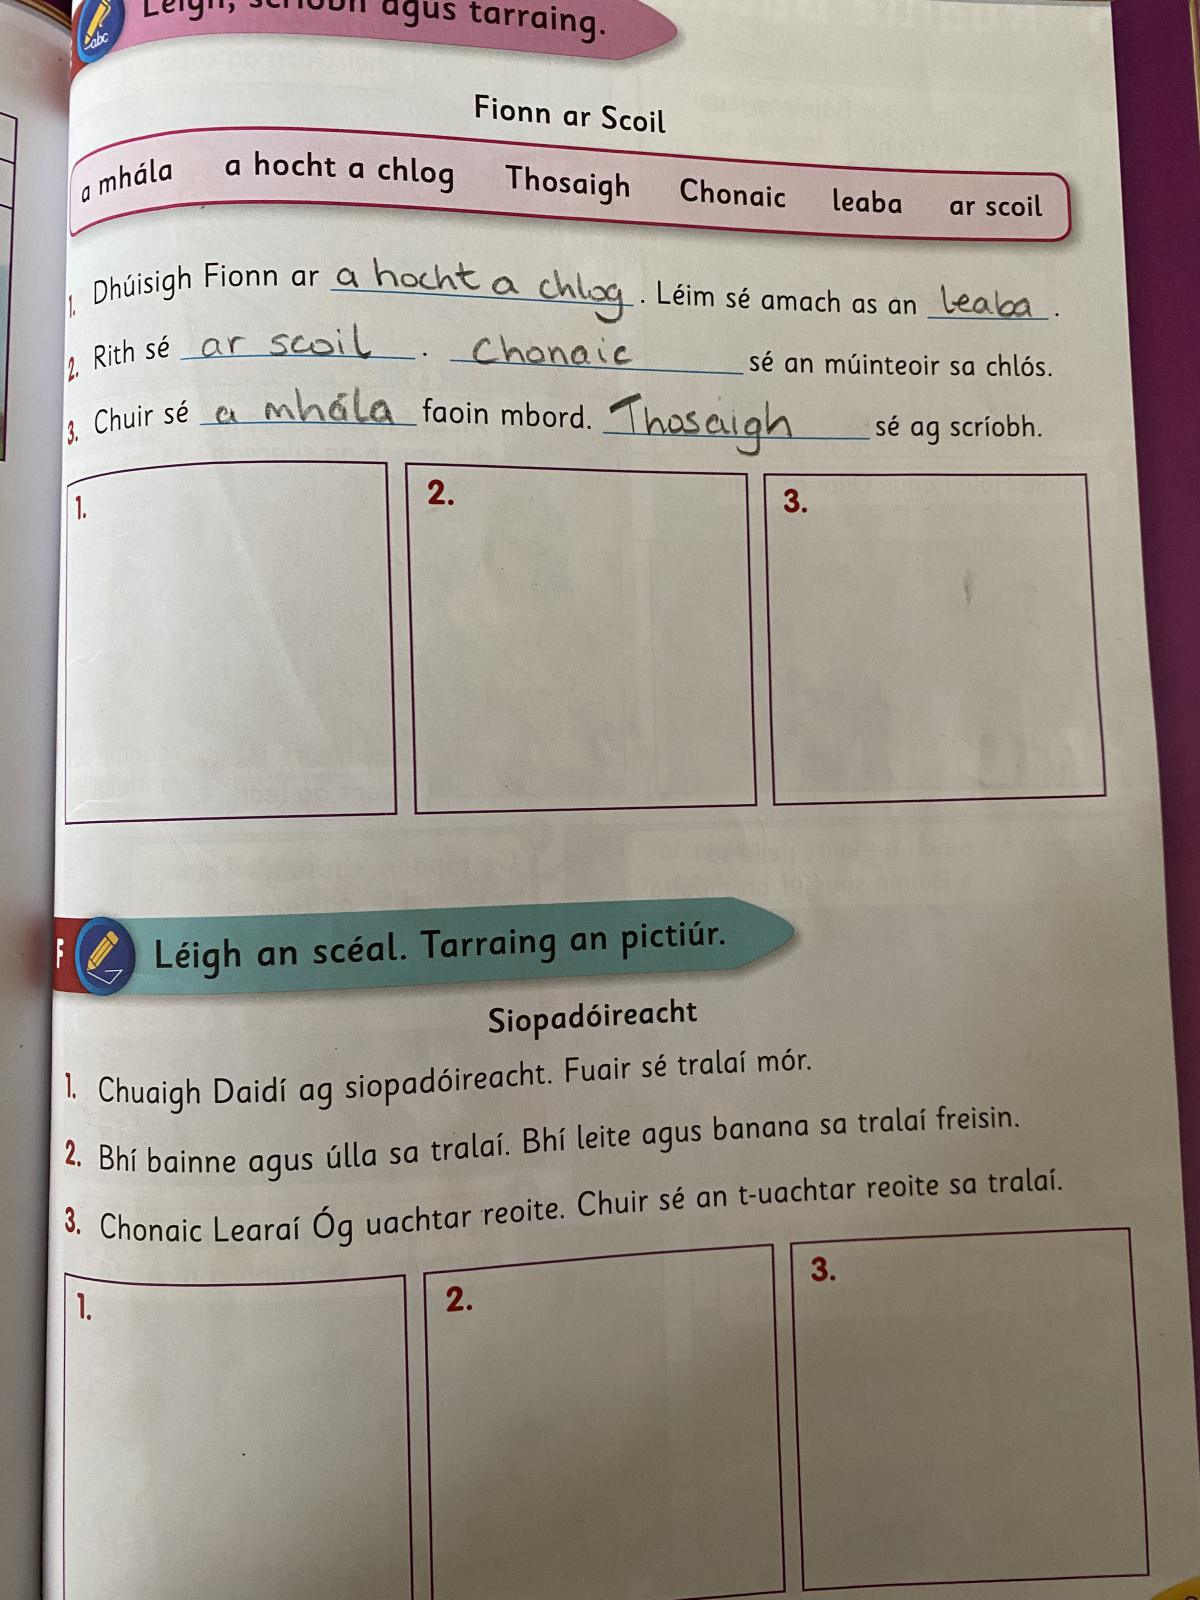 Léigh, scríobh agus tarraing.
abc
Fionn ar Scoil
a mhála a hocht a chlog Thosaigh Chonaic leaba ar scoil
1. Dhúisigh Fionn ar a hocht a chlog. Léim sé amach as an leaba.
2. Rith sé ar scoil. Chonaic sé an múinteoir sa chlós.
3. Chuir sé a mhála faoin mbord. Thosaigh sé ag scríobh.
1. 2. 3.
F Léigh an scéal. Tarraing an pictiúr.
Siopadóireacht
1. Chuaigh Daidí ag siopadóireacht. Fuair sé tralaí mór.
2. Bhí bainne agus úlla sa tralaí. Bhí leite agus banana sa tralaí freisin.
3. Chonaic Learaí Óg uachtar reoite. Chuir sé an t-uachtar reoite sa tralaí.
1. 2. 3.